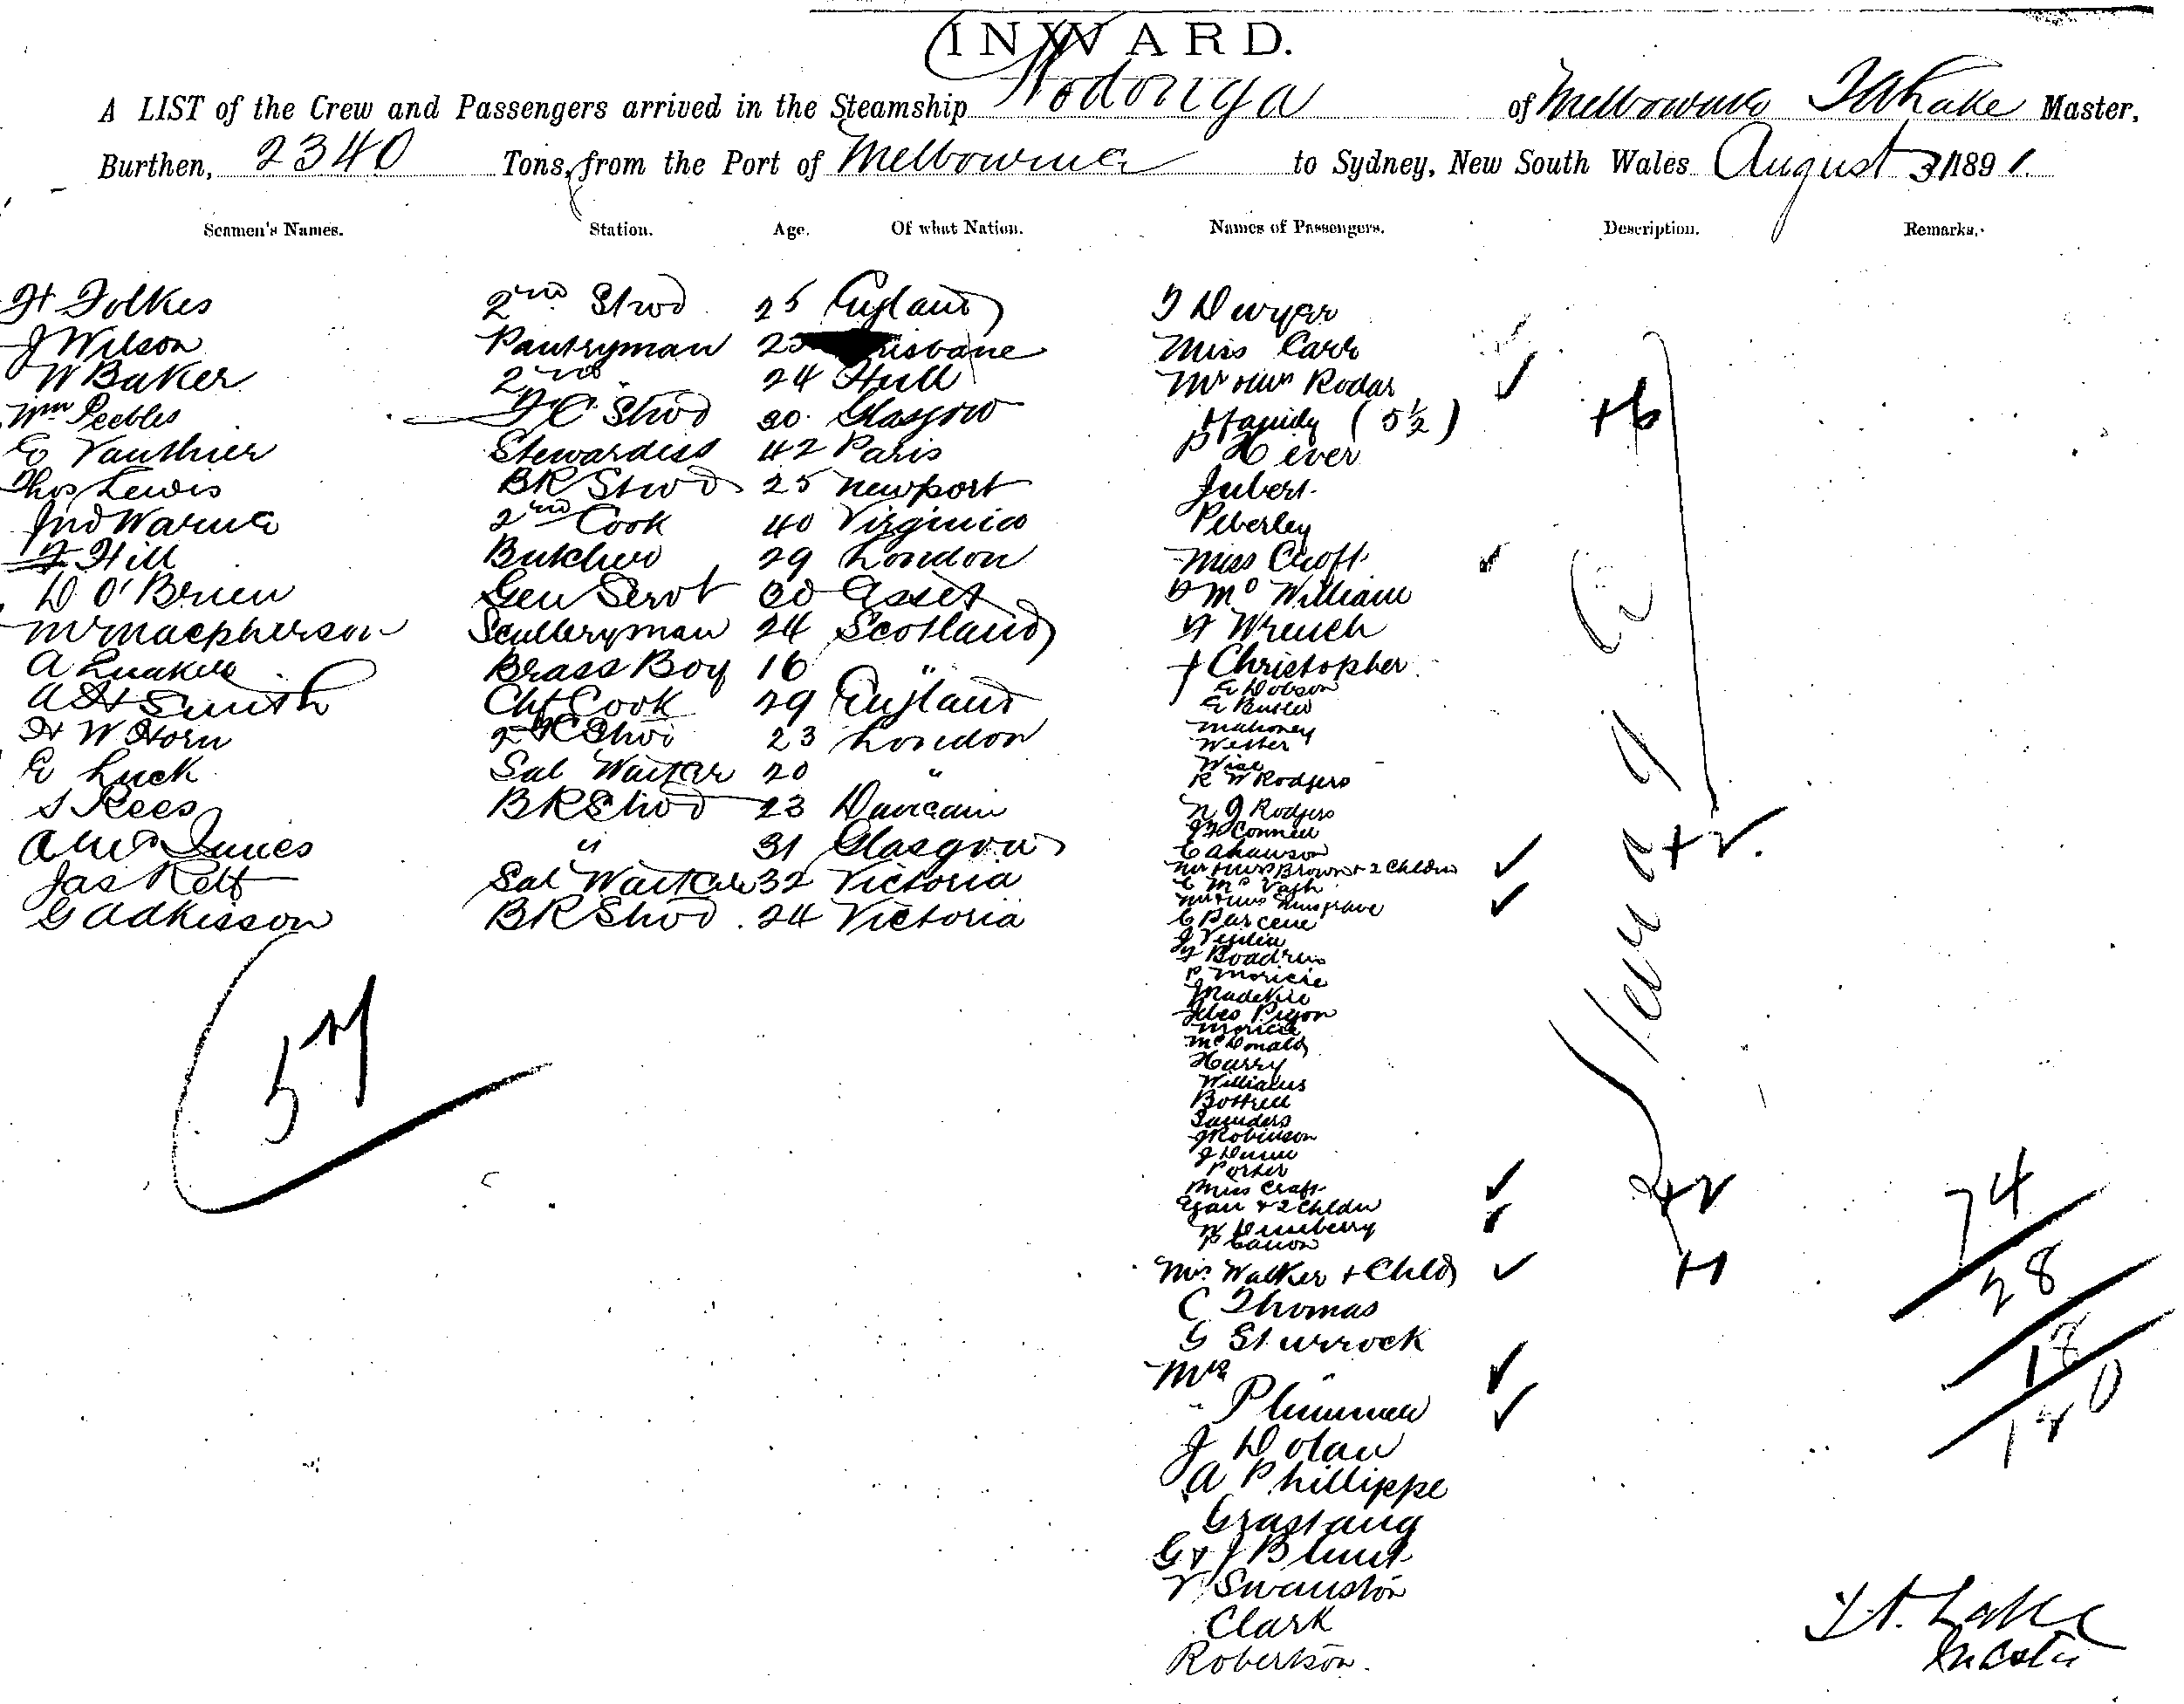 INWARD.
A LIST of the Crew and Passengers arrived in the Steamship Wodonga of Melbourne Lake Master,
Burthen, 2340 Tons, from the Port of Melbourne to Sydney, New South Wales August 31 1891.
Seamen's Names. Station. Age. Of what Nation. Names of Passengers. Description. Remarks.
H Folkes 2nd Stwd 25 England Dwyer
J Wilson Pantryman Brisbane Miss Carr
W Baker 2nd " 24 Hull Mr Mrs Rodar
Wm Peebles Stwd 30 Glasgow Family (5½) +6
E Vauthier Stewardess 42 Paris P Hever
Thos Lewis BR Stwd 25 Newport Jubert
Jno Warne 2nd Cook 40 Virginia Peberley
F Hill Butcher 29 London Miss Croft
D O'Brien Gen Servt McWilliam
M Macpherson Scullery man 24 Scotland Wrench
A Brass Boy 16 " Christopher
A H Smith Chf Cook 29 England E Dobson
E Butler
H W Horn 2nd Stwd 23 London Mahoney
Weber
E Luck Sal Waiter 20 " Wise
R W Rodgers
S Rees BR Stwd 23 N J Rodgers
Connell
A McInnes " 31 Glasgow
Mr & Mrs Brown + 2 Childrn +2
Jas Relf Sal Waiter 32 Victoria C McVagh
Mr & Mrs Musgrave
G Adkisson BR Stwd 24 Victoria
P Moricie
57
Moricie
McDonald
Harry
Williams
Bottrell
Saunders
J Robinson
J Dunn
Porter
Miss Craft
Egan + 2 Childn +2 74
P Canon
Mrs Walker + Child +1 28
C Thomas
G Sturrock 18
Mrs "
" Plummer 120
J Dolan
A Phillippe
Grastang
G & J Blunt
V Swanston
Clark
Robertson.
Lake
Master